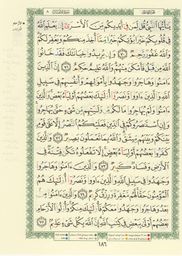 يَا أَيُّهَا النَّبِيُّ قُل لِّمَن فِي أَيْدِيكُم مِّنَ إِن يَعْلَمِ اللَّهُ
فِي قُلُوبِكُمْ خَيْرًا يُؤْتِكُمْ خَيْرًا مِّمَّا أُخِذَ مِنكُمْ وَيَغْفِرْ لَكُمْ
وَاللَّهُ غَفُورٌ رَّحِيمٌ ٧٠ وَإِن يُرِيدُوا خِيَانَتَكَ فَقَدْ خَانُوا
اللَّهَ مِن قَبْلُ فَأَمْكَنَ مِنْهُمْ وَاللَّهُ عَلِيمٌ حَكِيمٌ ٧١ إِنَّ الَّذِينَ
آمَنُوا وَهَاجَرُوا وَجَاهَدُوا بِأَمْوَالِهِمْ وَأَنفُسِهِمْ فِي سَبِيلِ
اللَّهِ وَالَّذِينَ آوَوا وَّنَصَرُوا أُولَٰئِكَ بَعْضُهُمْ أَوْلِيَاءُ بَعْضٍ
وَالَّذِينَ آمَنُوا وَلَمْ يُهَاجِرُوا مَا لَكُم مِّن وَلَايَتِهِم مِّن شَيْءٍ حَتَّىٰ يُهَاجِرُوا
وَإِنِ اسْتَنصَرُوكُمْ فِي الدِّينِ فَعَلَيْكُمُ النَّصْرُ إِلَّا عَلَىٰ قَوْمٍ
بَيْنَكُمْ وَبَيْنَهُم مِّيثَاقٌ وَاللَّهُ بِمَا تَعْمَلُونَ بَصِيرٌ ٧٢ وَالَّذِينَ
كَفَرُوا بَعْضُهُمْ أَوْلِيَاءُ بَعْضٍ إِلَّا تَفْعَلُوهُ تَكُن فِتْنَةٌ فِي
الْأَرْضِ وَفَسَادٌ كَبِيرٌ ٧٣ وَالَّذِينَ آمَنُوا وَهَاجَرُوا
وَجَاهَدُوا فِي سَبِيلِ اللَّهِ وَالَّذِينَ آوَوا وَّنَصَرُوا أُولَٰئِكَ هُمُ
الْمُؤْمِنُونَ حَقًّا لَّهُم مَّغْفِرَةٌ وَرِزْقٌ كَرِيمٌ ٧٤ وَالَّذِينَ آمَنُوا مِن
بَعْدُ وَهَاجَرُوا وَجَاهَدُوا مَعَكُمْ فَأُولَٰئِكَ مِنكُمْ وَأُولُو الْأَرْحَامِ
بَعْضُهُمْ أَوْلَىٰ بِبَعْضٍ فِي كِتَابِ اللَّهِ إِنَّ اللَّهَ بِكُلِّ شَيْءٍ عَلِيمٌ ٧٥
١٨٦